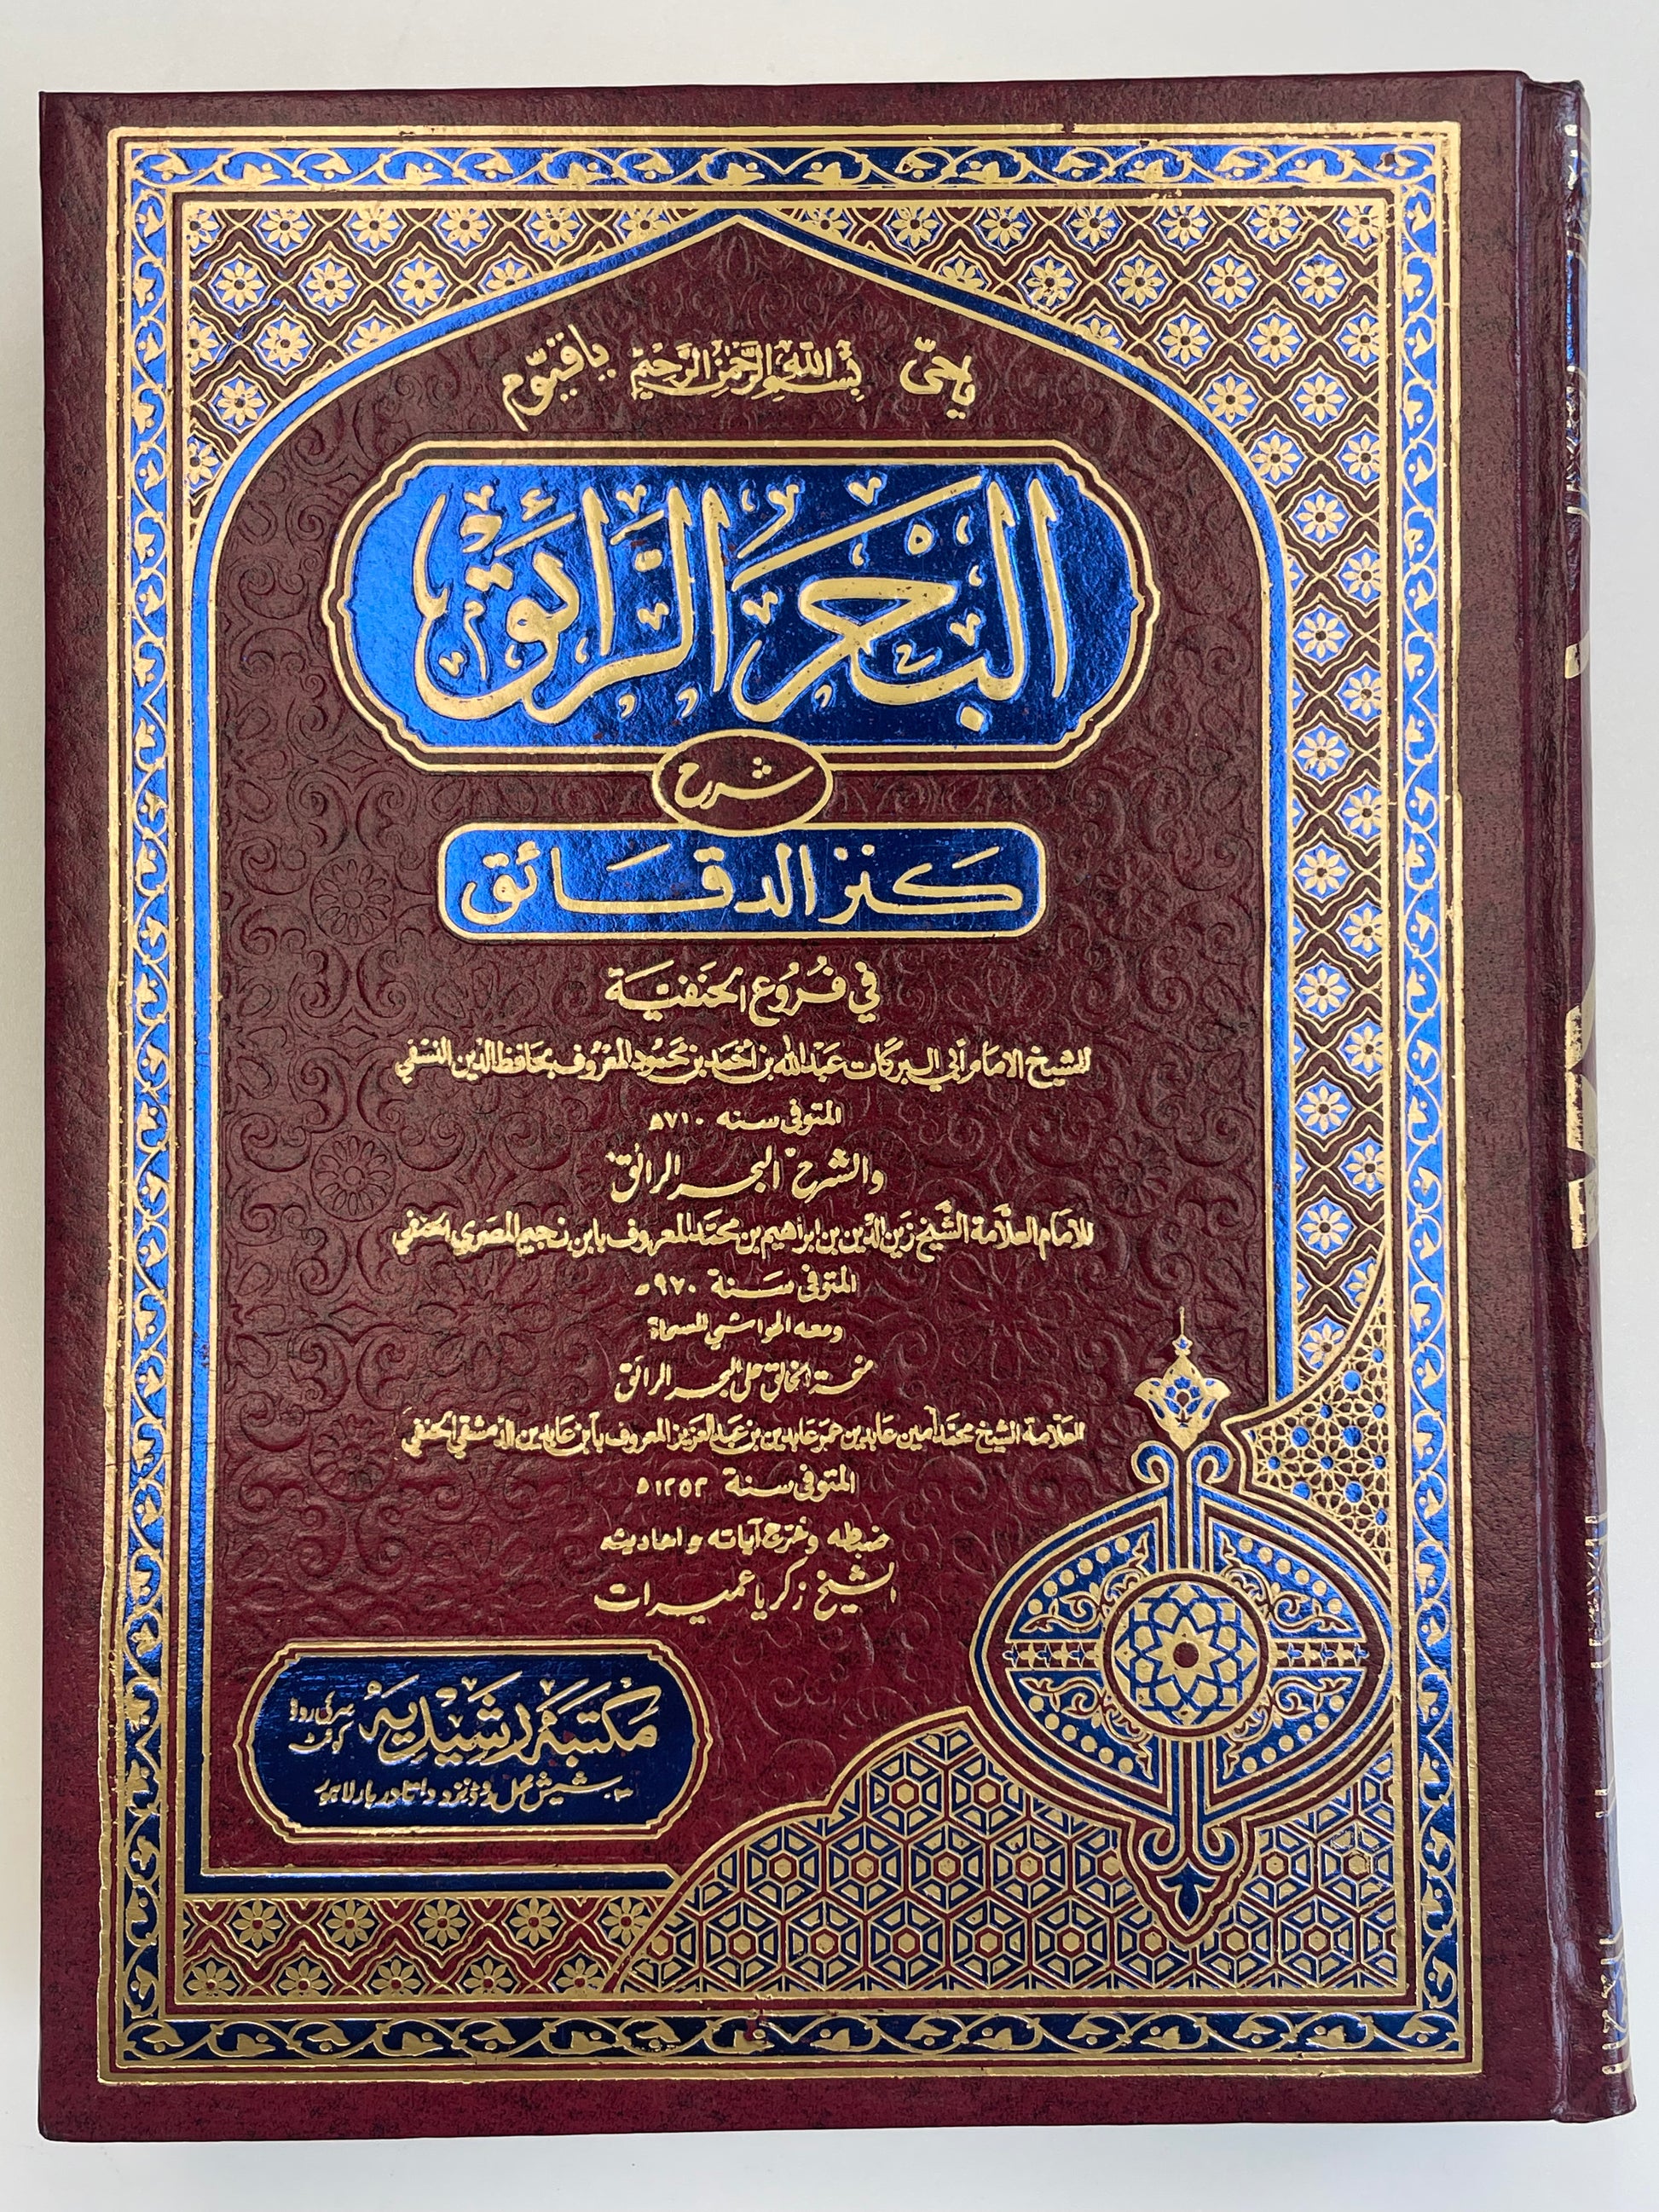 یاحیّ بِسْمِ اللّٰهِ الرَّحْمٰنِ الرَّحِیْمِ یاقیّوم
البَحْرُ الرَّائِق
شرح
كنز الدقائق
في فُرُوع الحَنَفيَّة
للشيخ الإمام أبي البركات عَبْدالله بن أحمد بن محمود المَعْرُوف بحافظ الدين النسَفي
المتوفى سنه ٧١٠ھ
والشرح "البحر الرائق"
للإمام العلاّمة الشَّيْخ زين الدِّين بن ابراهيم بن محمَّد المعروف بابن نجيم المصري الحنفي
المتوفى سَنة ٩٧٠ھ
ومعه الحواشي المسماة
منحة الخالق على البحر الرائق
للعَلامة الشيخ محمَّد أمين عابدين بن عمَر عابدين بن عَبد العزيز المعروف بابن عابدين الدمشقي الحنفي
المتوفى سنة ١٢٥٢ھ
ضبطه وخرج آياته واحاديثه
الشيخ زكريا عميرات
مَكْتَبَه رَشِيْدِيَه سرکی روڈ کوئٹہ
شیش محل روڈ نزد داتا دربار لاہور